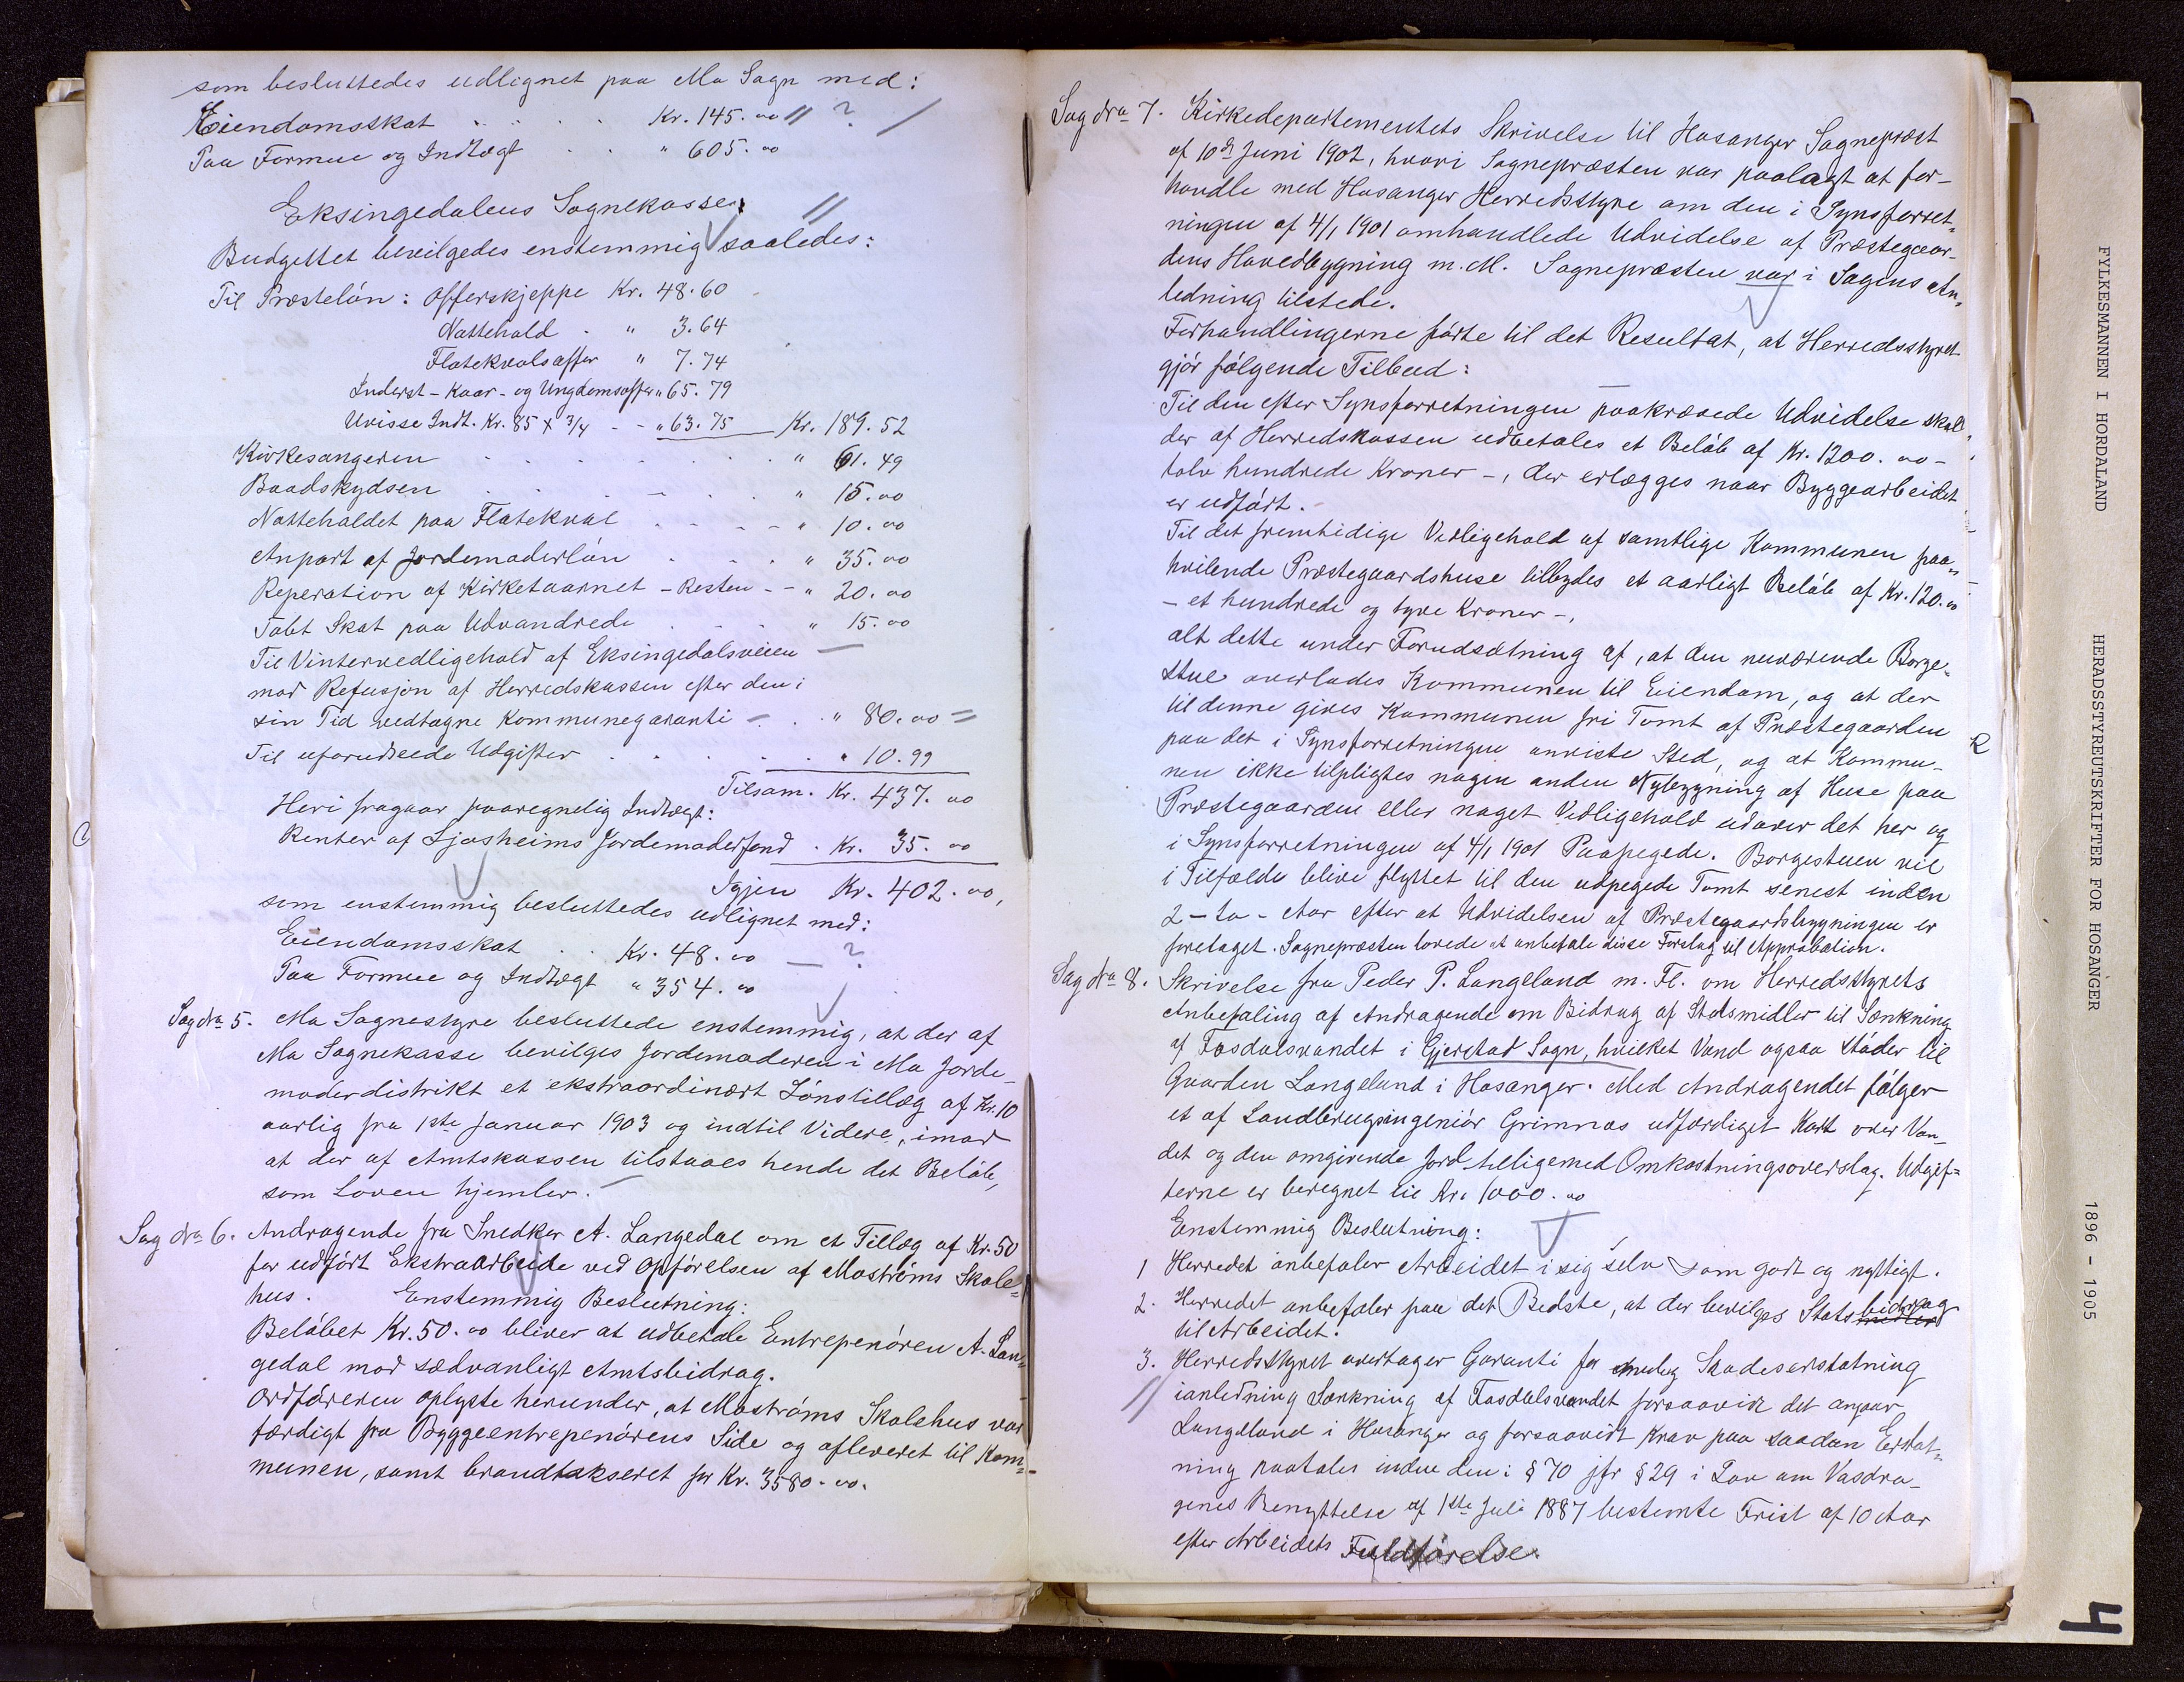 som besluttedes udlignet paa Mo Sogn med:
Eiendomsskat . . . . Kr. 145.00 // ? /
Paa Formue og Indtægt . . " 605.00
Eksingedalens Sognekasse. //
Budgettet bevilgedes enstemmig saaledes:
Til Præsteløn: Offerskjeppe Kr. 48.60
Nattehold . " 3.64
Flatekvalsoffer " 7.74
Inderst- Kaar- og Ungdomsoffer " 65.79
Uvisse Indt. Kr. 85 x 3/4 - - " 63.75 Kr. 189.52
Kirkesangeren . . . . . . . " 61.49
Baadskydsen . . . . . . " 15.00
Natteholdet paa Flatekval . . . - - " 10.00
Anpart af Jordemoderløn . . . " 35.00
Reperation af Kirketaarnet - Resten - - " 20.00
Tabt Skat paa Udvandrede . . . " 15.00
Til Vintervedligehold af Eksingedalsveien —
mod Refusjon af Herredskassen efter den i
sin Tid vedtagne Kommunegaranti = . . " 80.00 =
Til uforudseede Udgifter . . . . . " 10.99
Tilsam. Kr. 437.00
Heri fragaar paaregnelig Indtægt:
Renter af Ljosheims Jordemoderfond . Kr. 35.00
Igjen Kr. 402.00,
som enstemmig besluttedes udlignet med:
Eiendomsskat . . Kr. 48.00 — ?
Paa Formue og Indtægt " 354.00
Sag No 5. Mo Sognestyre besluttede enstemmig, at der af
Mo Sognekasse bevilges Jordemoderen i Mo Jorde-
moderdistrikt et ekstraordinært Lønstillæg af Kr. 10
aarlig fra 1ste Januar 1903 og indtil Videre, imod
at der af Amtskassen tilstaaes hende det Beløb,
som Loven hjemler. —
Sag No 6. Andragende fra Snedker A. Langedal om et Tillæg af Kr. 50
for udført Ekstraarbeide ved Opførelsen af Mostrøms Skole=
hus. Enstemmig Beslutning:
Beløbet Kr. 50.00 bliver at udbetale Entrepenøren A. Lan=
gedal mod sædvanligt Amtsbidrag.
Ordføreren oplyste herunder, at Mostrøms Skolehus var
færdigt fra Byggeentrepenørens Side og afleveret til Kom=
munen, samt brandtakseret for Kr. 3580.00.
Sag No 7. Kirkedepartementets Skrivelse til Hosanger Sogneprest
af 10de Juni 1902, hvori Sognepræsten var paalagt at for-
handle med Hosanger Herredsstyre om den i Synsforret=
ningen af 4/1 1901 omhandlede Udvidelse af Præstegaar-
dens Hovedbygning m. M. Sognepræsten var i Sagens An=
ledning tilstede.
Forhandlingerne førte til det Resultat, at Herredsstyret
gjør følgende Tilbud:
Til den efter Synsforretningen paakrævede Udvidelse skal
der af Herredskassen udbetales et Beløb af Kr. 1200.00 -
tolv hundrede Kroner -, der erlægges naar Byggearbeidet
er udført. -
Til det fremtidige Vedligehold af samtlige Kommunen paa=
hvilende Præstegaardshuse tilbydes et aarligt Beløb af Kr. 120.00
- et hundrede og tyve Kroner -,
alt dette under Forudsætning af, at den nuværende Borge=
stue overlades Kommunen til Eiendom, og at der
til denne gives Kommunen fri Tomt af Præstegaarden
paa det i Synsforretningen anviste Sted, og at Kommu-
nen ikke tilpligtes nogen anden Nybygning af Huse paa
Præstegaarden eller noget Vedligehold udover det her og
i Synsforretningen af 4/1 1901 Paapegede. Borgestuen vil
i Tilfælde blive flyttet til den udpegede Tomt senest inden
2 - to - Aar efter at Udvidelsen af Præstegaardsbygningen er
foretaget. Sognepræsten lovede at anbefale disse Forslag til Approbation.
Sag No 8. Skrivelse fra Peder P. Langeland m. Fl. om Herredsstyrets
Anbefaling af Andragende om Bidrag af Statsmidler til Sænkning
af Fosdalsvandet i Gjerstad Sogn, hvilket Vand ogsaa støder til
Gaarden Langeland i Hosanger. Med Andragendet følger
et af Landbrugsingeniør Grimnes udfærdiget Kart over Van-
det og den omgivende Jord tilligemed Omkostningsoverslag. Udgif=
terne er beregnet til Kr. 1000.00
Enstemmig Beslutning:
1 Herredet anbefaler Arbeidet i sig selv som godt og nyttigt.
2. Herredet anbefaler paa det Bedste, at der bevilges Statsbidrag
til Arbeidet.
3. Herredsstyret overtager Garanti for mulig Skadeserstatning
// ianledning Sænkning af Fosdalsvandet forsaavidt det angaar
Langeland i Hosanger og forsaavidt Krav paa saadan Erstat=
ning paatales inden den i § 70 jfr § 29 i Lov om Vasdra-
genes Benyttelse af 1ste Juli 1887 bestemte Frist af 10 Aar
efter Arbeidets Fuldførelse.
FYLKESMANNEN I HORDALAND HERADSSTYREUTSKRIFTER FOR HOSANGER 1896 - 1905
4